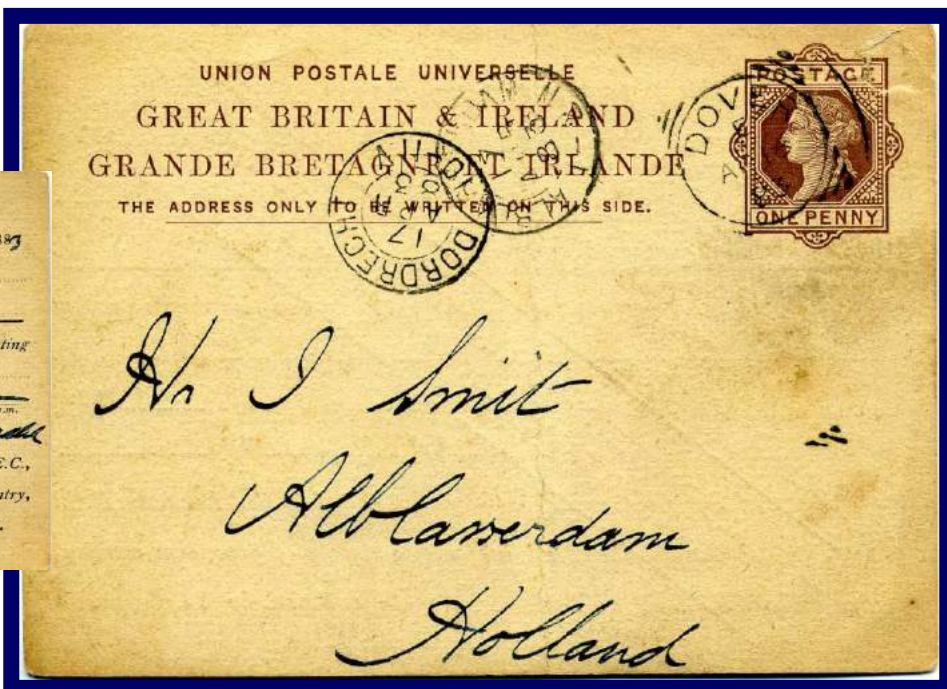 UNION POSTALE UNIVERSELLE
GREAT BRITAIN & IRELAND
GRANDE BRETAGNE ET IRLANDE
THE ADDRESS ONLY TO BE WRITTEN ON THIS SIDE.
POSTAGE
ONE PENNY
DOVE
DORDRECH
17
AP
Hr I Smit
Alblasserdam
Holland
ting
.m.
E.C.,
ntry,